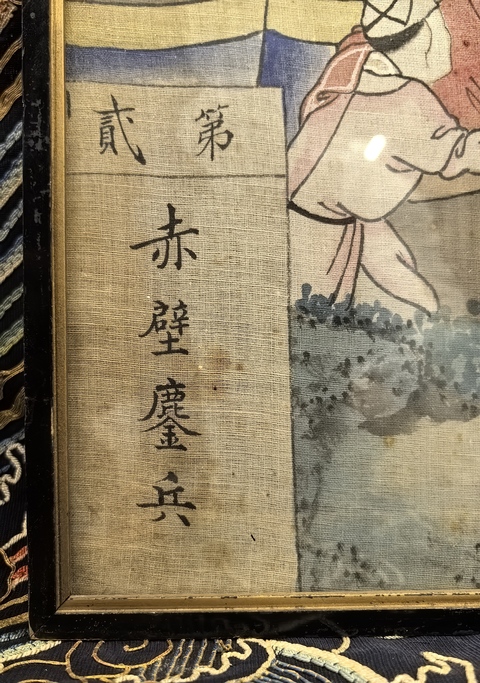 第貳
赤壁鏖兵